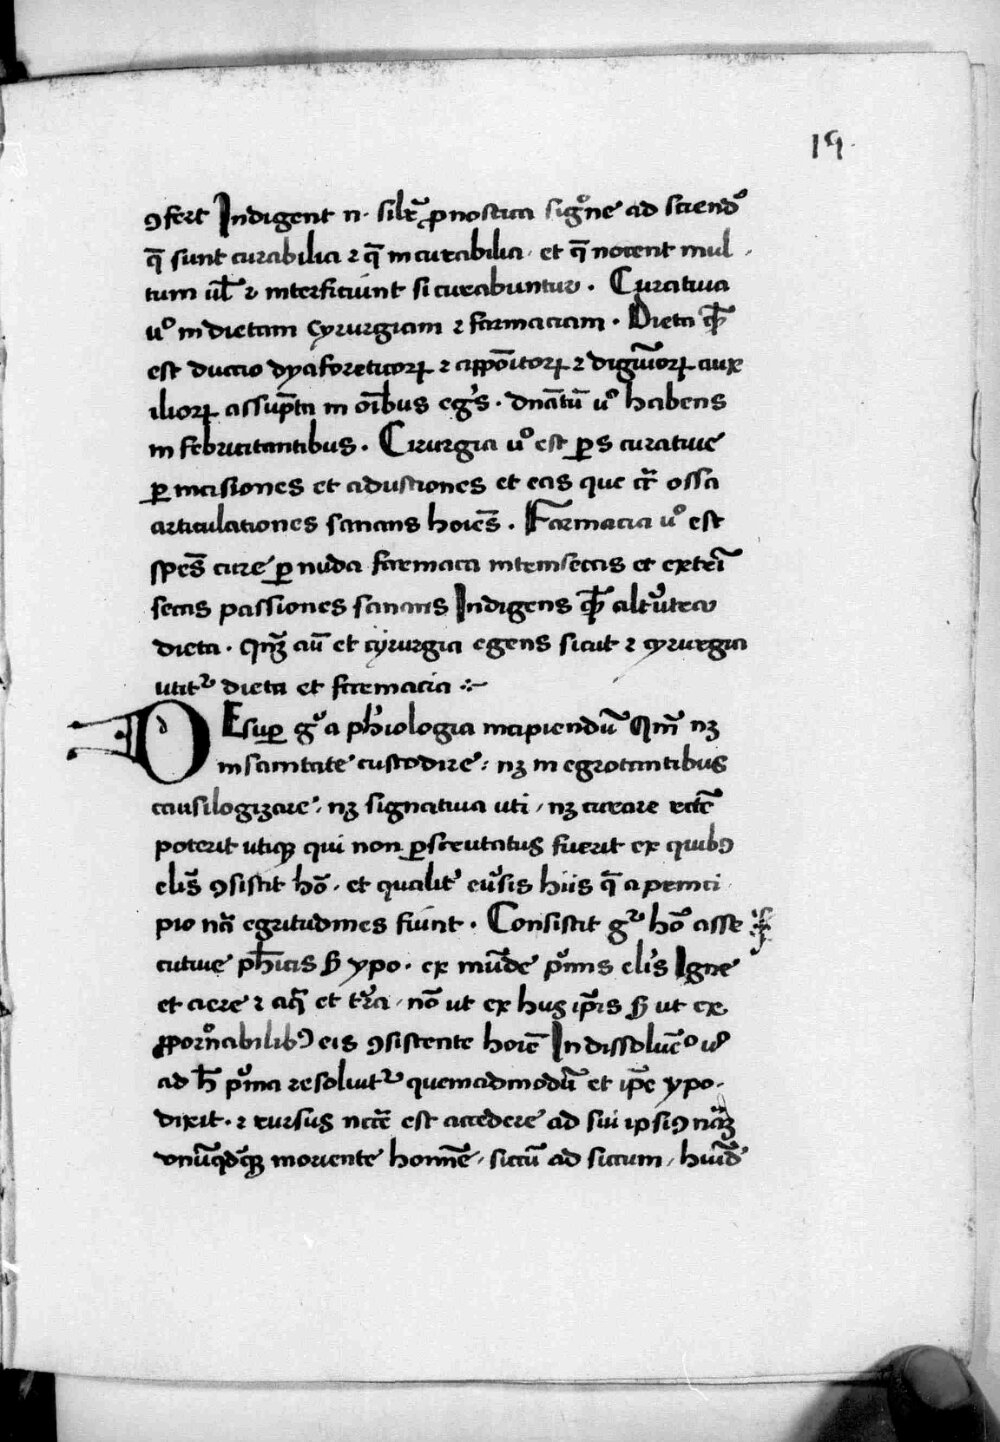 19.
ꝯfert Indigent n. silr̄ ꝓnostica sigᵒne ad sciendᵒ
q̄ sunt curabilia ⁊ q̄ incurabilia. et q̄ nocent mul
tum ul̄ ⁊ interficiunt si curabuntur. Curatiua
uᵒ in dietam Cyrurgiam ⁊ farmaciam. Dieta
est ductio dyaforeticoꝝ ⁊ ⁊ aux
ilioꝝ assūpta in oībus egis. dnātū uᵒ habens
in febricitantibus. Cirurgia uᵒ est ꝑs curatiue
ꝑ incisiones et adustiones et eas que cr̄ ossa
articulationes sanans hoīes. Farmacia uᵒ est
spēs cure ꝑ nuda farmaca intrinsecas et extrī
secas passiones sanans Indigens
dieta. aū et cyrurgia egens sicut ⁊ cyrurgia
utitᵘ dieta et farmacia
DEsuꝑ gᵒ a phiologia incipiendū Qm̄ nꝫ
in sanitate custodire: nꝫ in egrotantibus
causilogizare, nꝫ signatiua uti, nꝫ curare rcte
poterit utiqꝫ qui non ꝑscrutatus fuerit ex quibꝰ
elis ꝯsistit hō. et qualit eusis hiis q̄ a princi
pio nā egritudines fiunt. Consistit gᵒ hō asse
cutiue phicis ypo. ex mūde pᵒmis elis Igne
et aere ⁊ aq̄ et tra, nō ut ex hus ipis ut ex
eis ꝯsistente hoīe In dissolucᵒ uᵒ
ad h̄ pᵒma resoluitᵘ quemadmodū et ipe ypo.
dixit. ⁊ rursus ncce est accedere ad sui ipsiꝰ nāꝫ
moriente homīe, siccū ad siccum,